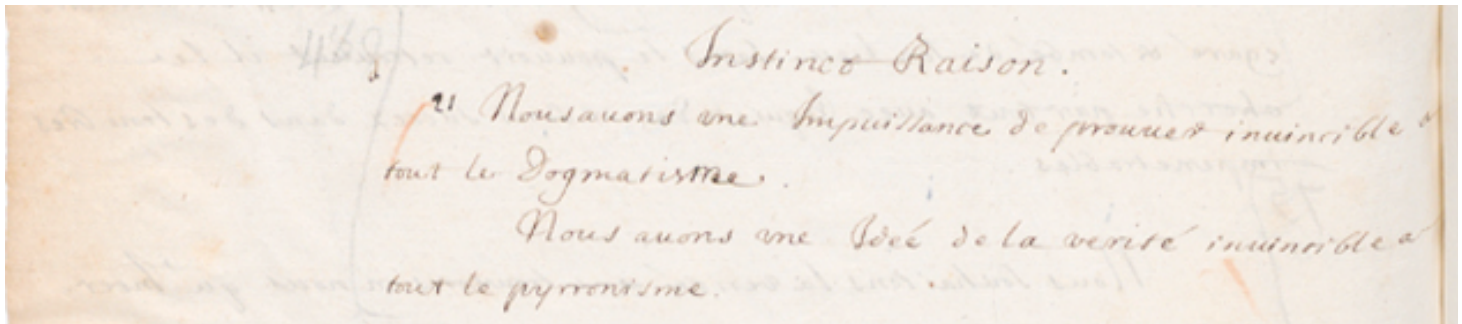 Instinct Raison.
21 Nous auons vne Impuissance de prouuer inuincible a
tout le Dogmatisme.
Nous auons vne Ideé de la verité inuincible a
tout le pyrronisme.